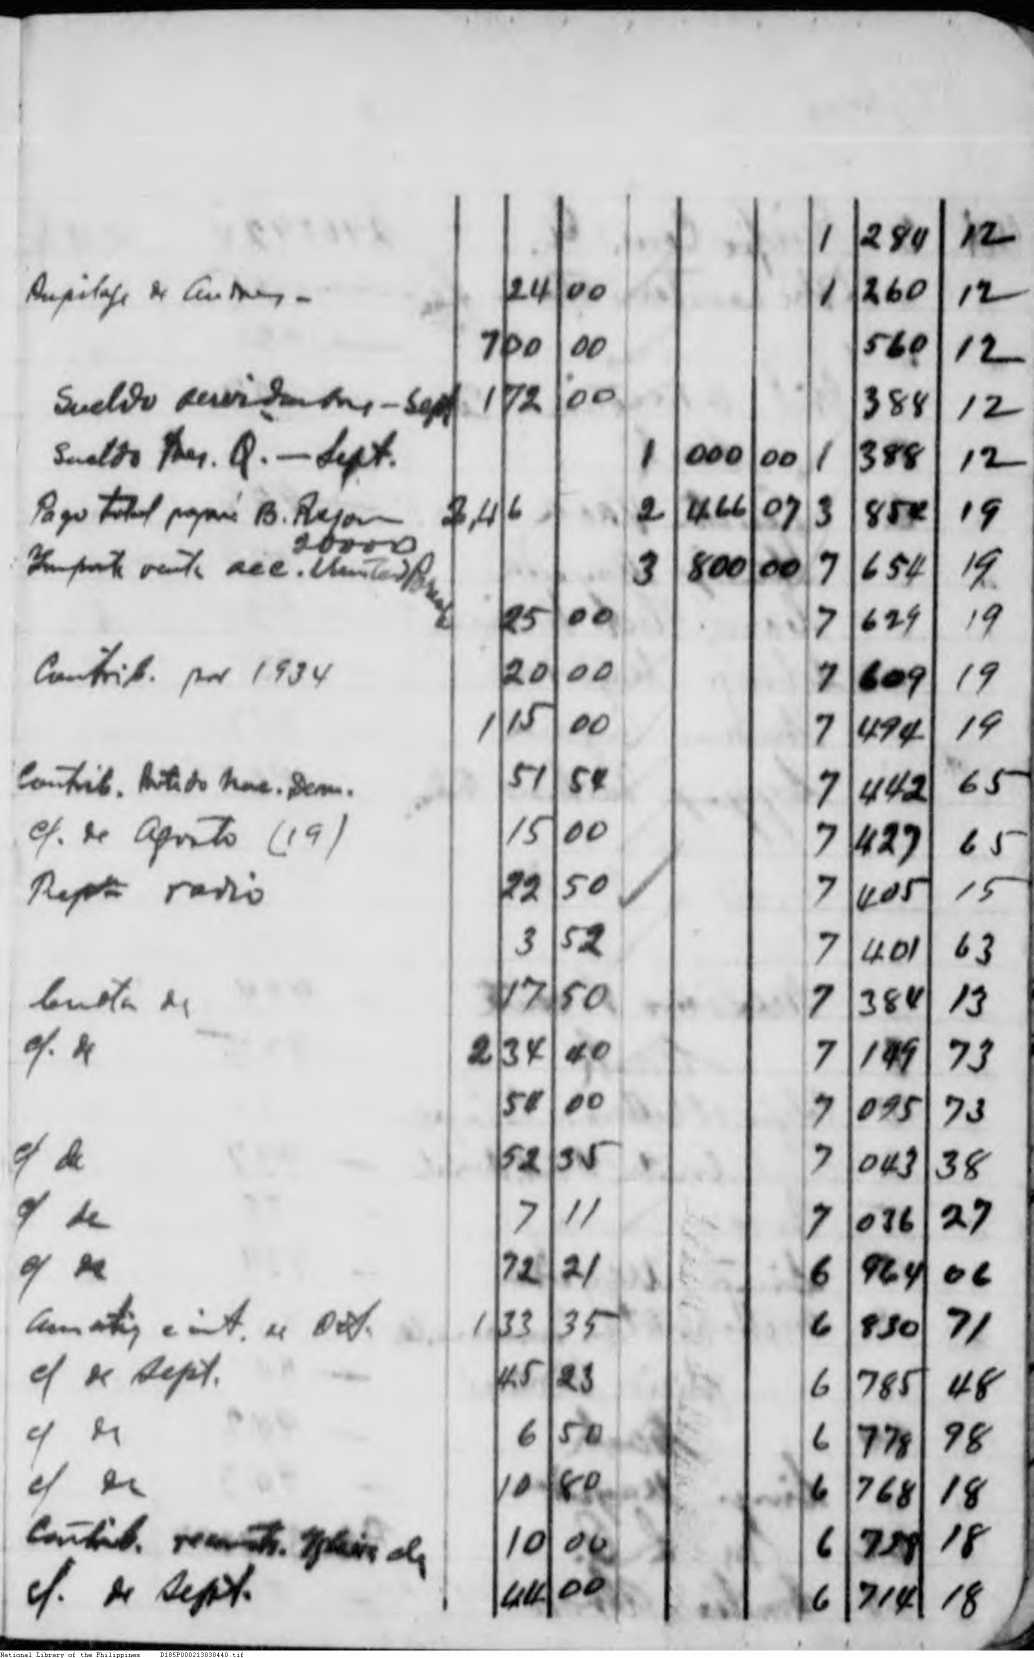 1 284 12
de 24 00 1 260 12
700 00 560 12
Sueldo - Sept 172 00 388 12
Sueldo Q. - Sept. 1 000 00 1 388 12
Pago total B. 2,46 2 466 07 3 854 19
20000
venta acc. United 3 800 00 7 654 19
25 00 7 629 19
Contrib. por 1934 20 00 7 609 19
115 00 7 494 19
Contrib. Partido Nac. Dem. 51 54 7 442 65
c/. de Agosto (19) 15 00 7 427 65
radio 22 50 7 405 15
3 52 7 401 63
Cuota de 17 50 7 384 13
c/. de 234 40 7 149 73
54 00 7 095 73
c/ de 52 35 7 043 38
c/ de 7 11 7 036 27
c/ de 72 21 6 964 06
int. de Oct. 133 35 6 830 71
c/ de Sept. 45 23 6 785 48
c/ de 6 50 6 778 98
c/ de 10 80 6 768 18
Contrib. 10 00 6 758 18
c/. de Sept. 44 00 6 714 18
National Library of the Philippines D185P000213030440.tif